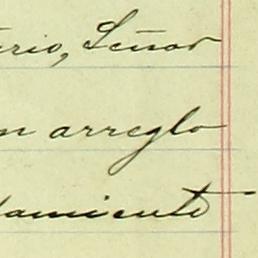 rio, Señor
n arreglo
damiento